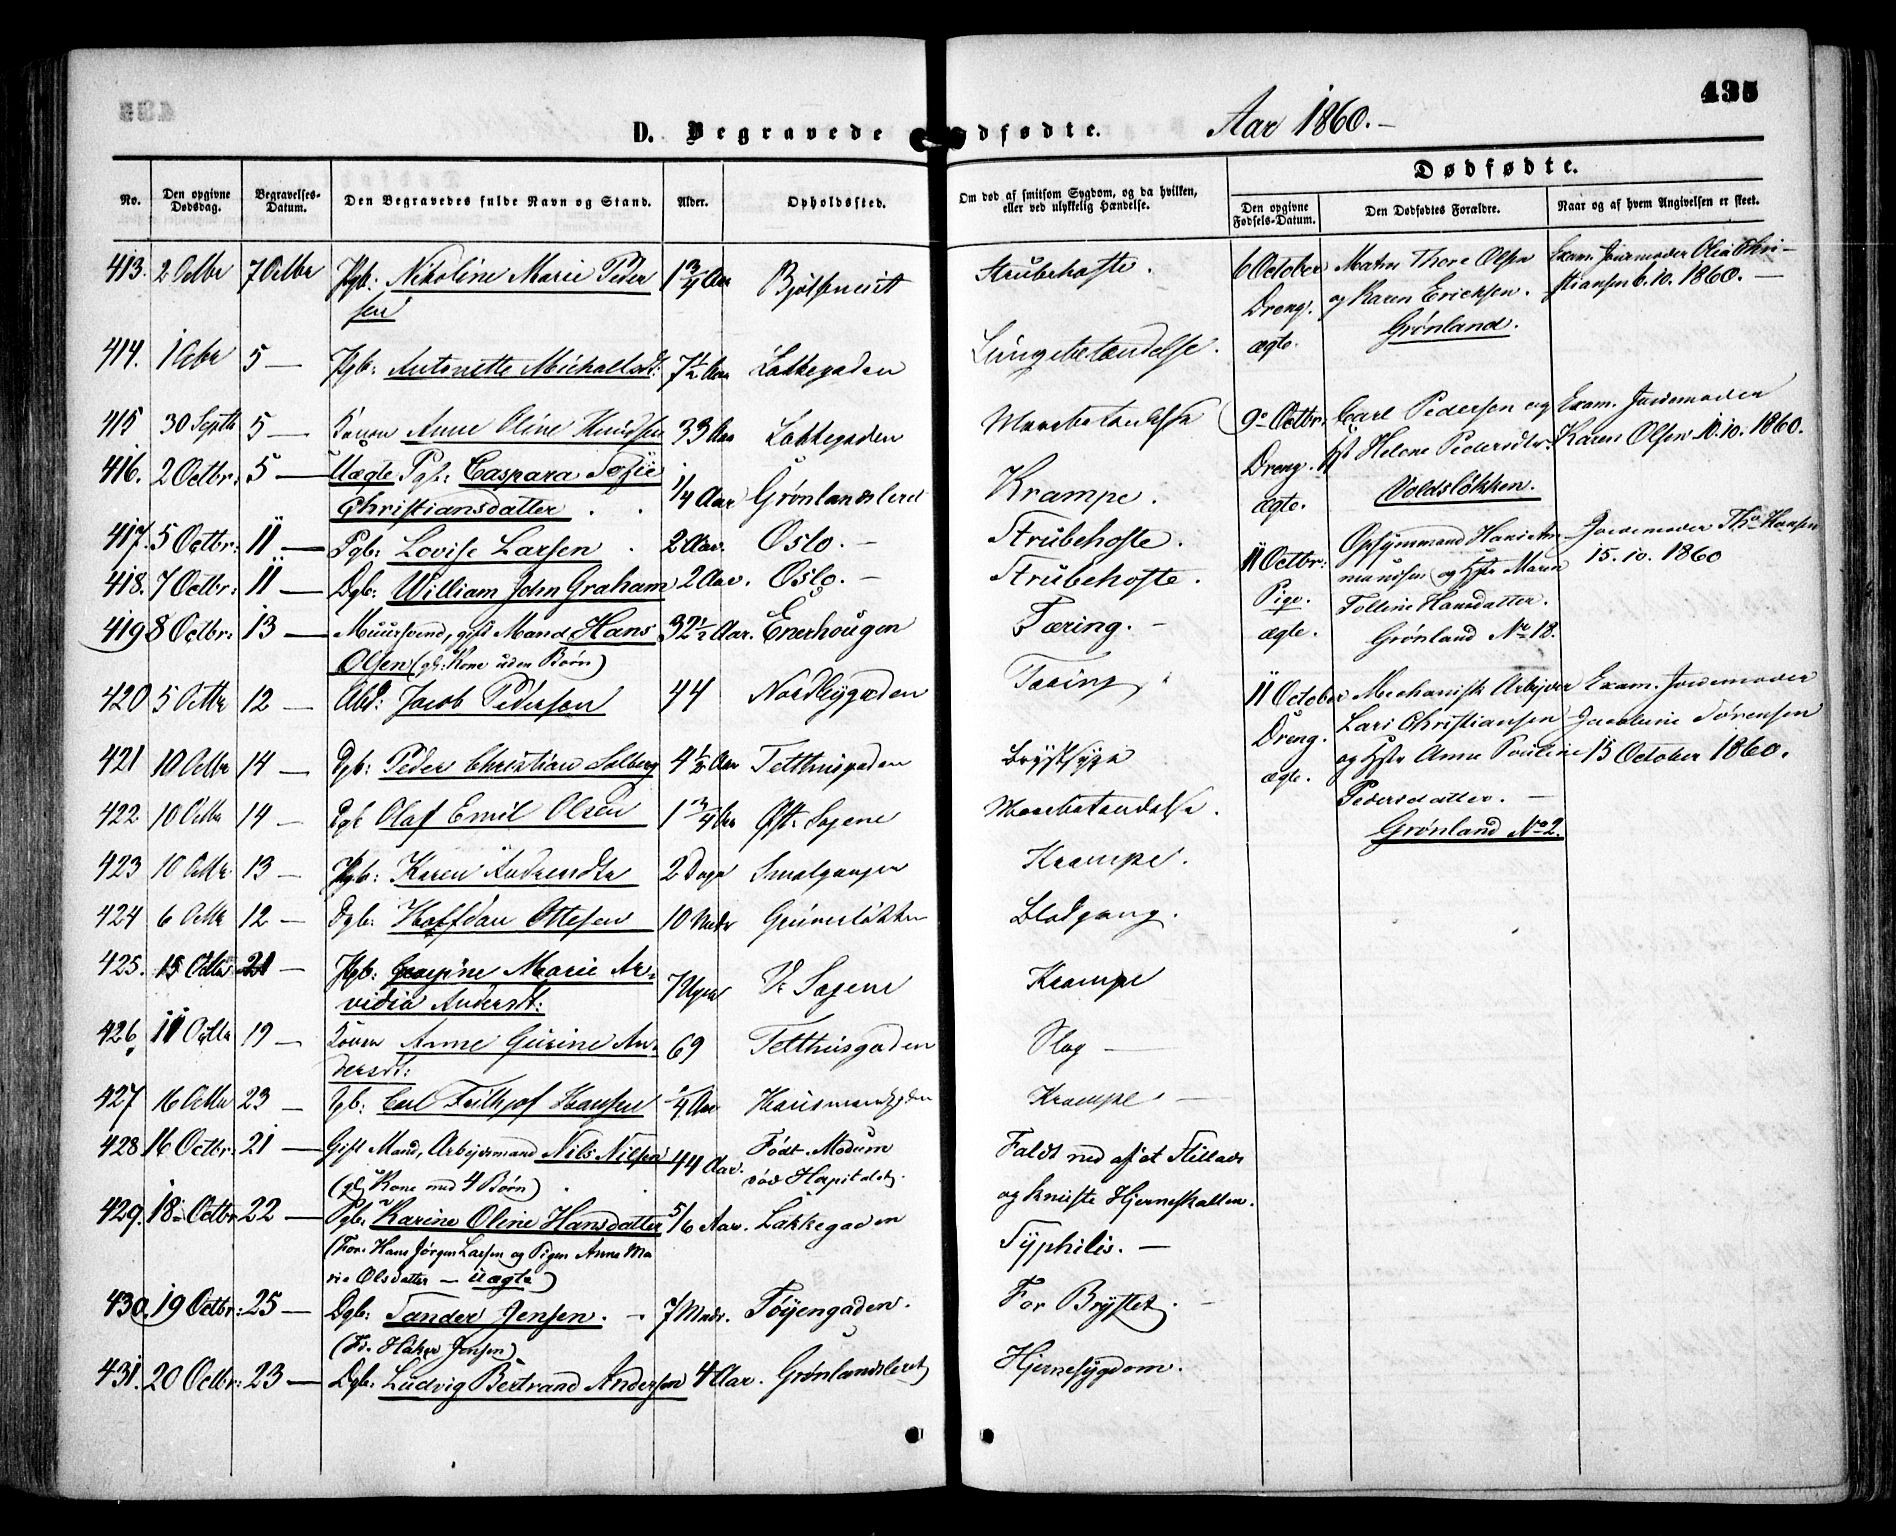 435
D. Begravede og Dødfødte. Aar 1860.-
Dødfødte.
No. Den opgivne Dødsdag. Begravelses-Datum. Den Begravedes fulde Navn og Stand. Alder. Opholdssted. Om død af smitsom Sygdom, og da hvilken, eller ved ulykkelig Hændelse. Den opgivne Fødsels-Datum. Den Dødfødtes Forældre. Naar og af hvem Angivelsen er skeet.
413. 2 Octbr 7 Octbr Pgb: Nikoline Marie Peder
sen 1 3/4 Aar Strubehoste.
414. 1 Octbr 5 — Pgb: Antonette 7 1/2 Aar Lakkegaden Lungebetændelse.
415 30 Septb 5 — Konen Anne Oline Knudsen 33 Aar Lakkegaden
416. 2 Octbr: 5 — Uægte Pgb: Caspara Sofie
Christiansdatter . . 1/4 Aar Grønlandsleret Krampe.
417. 5 Octbr: 11 — Pgb: Lovise Larsen . 2 Aar. Oslo. — Strubehoste.
418. 7 Octbr: 11 — Dgb: William John Graham 2 Aar. Oslo. — Strubehoste.
419 8 Octbr: 13 — Muursvend, gift Mand Hans
Olsen (gl: Kone uden Børn) 32 1/2 Aar. Enerhougen Tæring. —
420 5 Octbr 12 — Abd: Jacob Pedersen 44 Nordbygaden Tæring
421 10 Octbr 14 — Dgb: Peder Christian Solberg 4 1/2 Aar Tetthusgaden Brystsyge
422 10 Octbr 14 — Dgb Olaf Emil Olsen 1 3/4 Aar Øst. Sagene
423 10 Octbr 13 — Pgb: Karen 2 Dage Smalgangen Krampe.
424 6 Octbr 12 — Dgb: Halfdan Ottesen 10 Mndr Grünerløkken Blodgang.
425. 15 Octbr 21 — Pgb: Marie Ar-
vidia Andersdt: 7 Uger V. Sagene Krampe
426. 11 Octbr 19 — Konen Anne Gurine An-
dersdt: 69 Tetthusgaden Slag —
427 16 Octbr 23 — Dgb: Carl Frithjof Hansen 1/4 Aar Hausmannsgaden Krampe —
428 16 Octbr: 21 — Gift Mand, Arbeidsmand Nils Nilsen
(gl: Kone med 4 Børn) 44 Aar. Født Modum
død Hospitalet. Faldt ned af et Stillads
og knuste Hjerneskallen.
429. 18 Octbr 22 — Pgb: Karine Oline Hansdatter 5/6 Aar. Lakkegaden Syphilis. —
(For. Hans Jørgen Larsen og Pigen Anne Ma
rie Olsdatter — Uægte)
430. 19 Octbr: 25 — Dgb: Sander Jensen. — 7 Mndr. Tøyengaden. For Brystet. —
431. 20 Octbr: 23 — Dgb: Ludvig Bertrand Andersen 4 Aar. Grønlandsleret Hjernesygdom.
6 October
Dreng.
ægte. Thore Olsen
og Karen Ericksen.
Grønland. Exam. Jordmoder Olia Chri-
stiansen 6.10. 1860. —
9de Octbr:
Dreng.
ægte. Carl Pedersen og
Hst Helene Pedersdtr.
Voldsløkken. Exam. Jordemoder
Karen Olsen 11.10. 1860.
11 Octbr:
Pige.
ægte. Opsynsmand Hans
og Hstr Maren
Toline Hansdatter.
Grønland No 18. Jordemoder Th. Hansen
15. 10. 1860
11 October
Dreng.
ægte. Mechanisk Arbejder
Lars Christiansen
og Hstr Anne Pauline
Pedersdatter. —
Grønland No 2. Exam. Jordemoder
Jacobine Sørensen
15 October 1860.